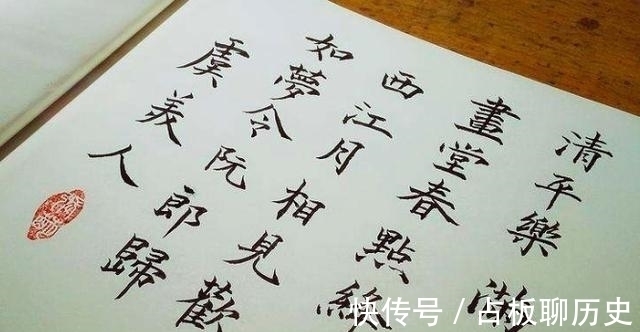 清平樂
畫堂春點絳
西江月相見歡
如夢令阮郎歸
虞美人
快传号 / 占板聊历史